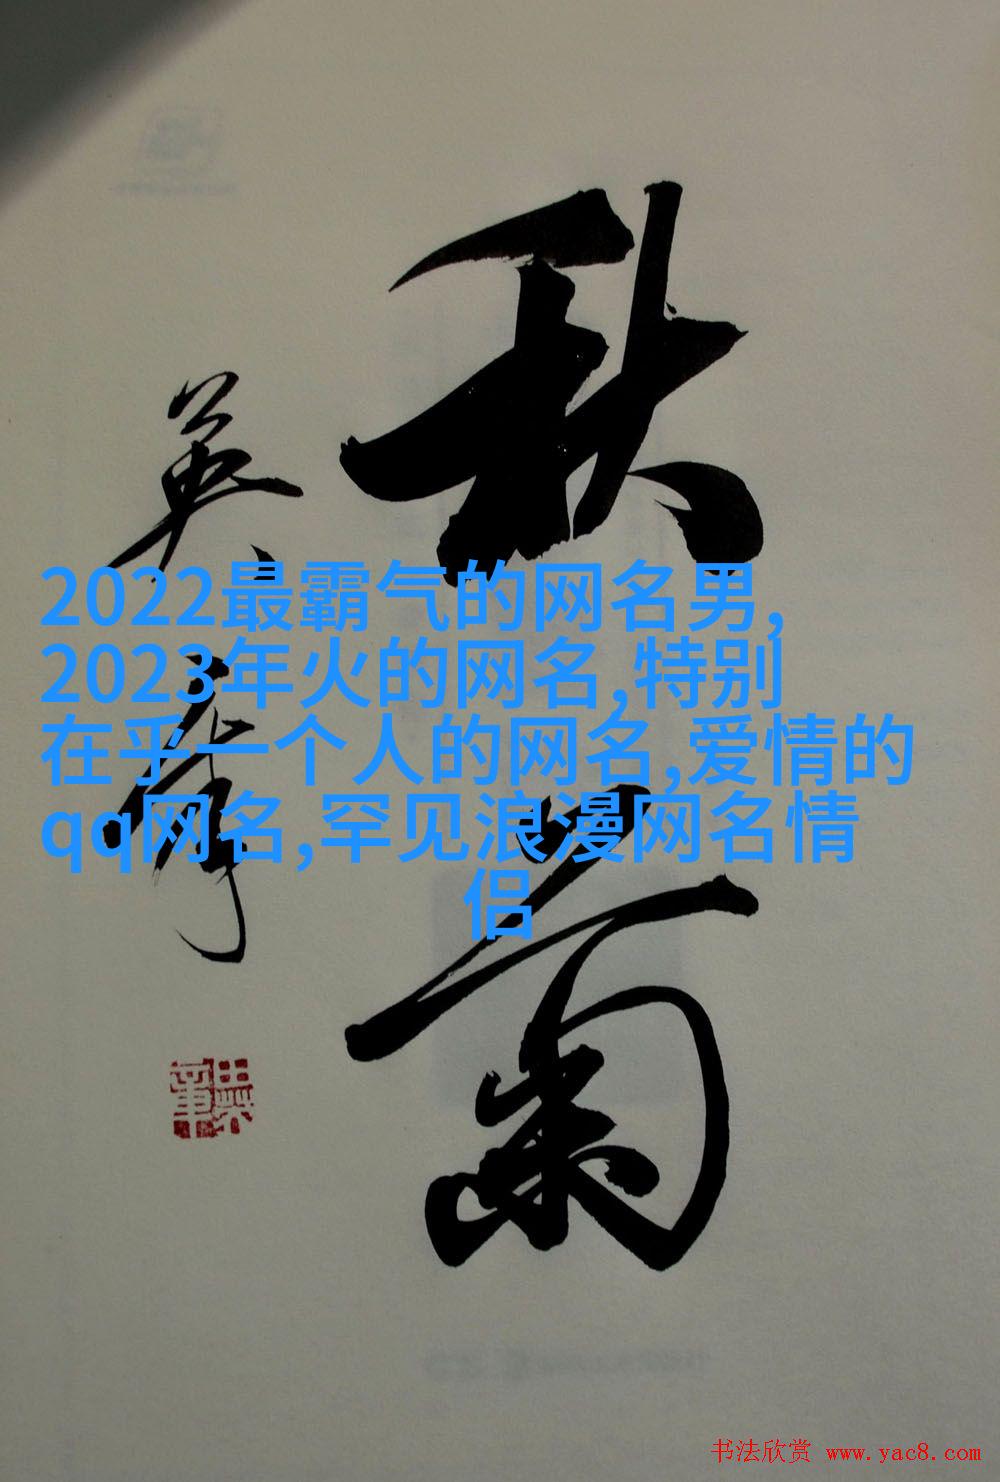 秋菊
英章
2022最霸气的网名男,
2023年火的网名,特别
在乎一个人的网名,爱情的
qq网名,罕见浪漫网名情
侣
书法欣赏 www.yac8.com